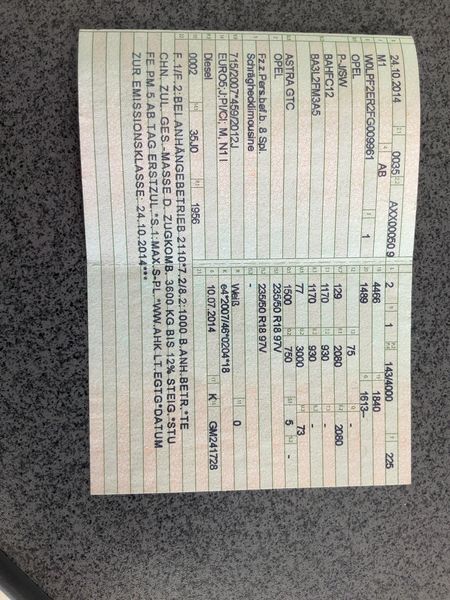 24.10.2014 0035 AXX00050 9 2 1 143/4000 225
M1 AB 4466 1840
W0LPF2ER2FG009961 1 4489 1613-
OPEL 75 -
P-J/SW 129 2080 2080
BAHFC12 1170 930 -
BA3L2FM3A5 1170 930 -
77 3000 73
ASTRA GTC 1500 750 5 -
OPEL 235/50 R18 97V
Fz.z.Pers.bef.b. 8 Spl. 235/50 R18 97V
Schräghecklimousine -
715/2007*459/2012J Weiß 0
EURO5;J;PI/CI; M, N1 I e4*2007/46*0204*18
Diesel 10.07.2014 K GM241728
0002 35J0 1956
F.1/F.2:BEI ANHÄNGEBETRIEB 2110*7.2/8.2:1000 B.ANH.BETR.*TE
CHN. ZUL. GES.-MASSE D. ZUGKOMB. 3600 KG BIS 12% STEIG.*STU
FE PM 5 AB TAG ERSTZUL.*S.1:MAX.S-PL.*WW.AHK LT.EGTG*DATUM
ZUR EMISSIONSKLASSE: 24.10.2014***